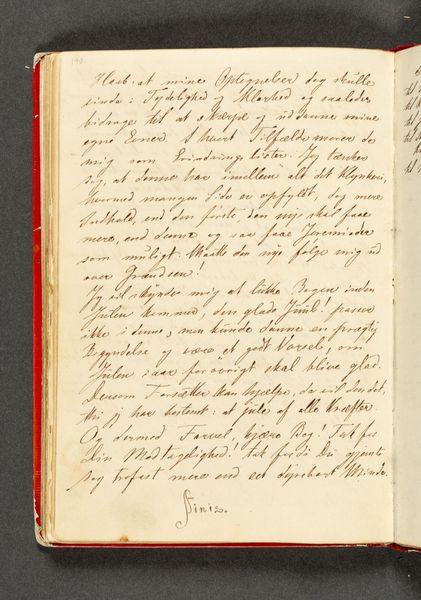 140
Haab at mine Optegnelser dog skulle
vinde i Tydelighed og Klarhed og saaledes
bidrage til at skærpe og uddanne mine
egne Evner. I hvert Tilfælde morer de
mig som Erindrings Lister. Jeg tænker
dog, at denne har imellem alt det Klynkeri,
hvormed mangen Side er opfyldt, dog mere
Indhold, end den første, den nye skal faae
mere, end denne og saa faae Jeremiader
som muligt. Maatte den nye følge mig ud
over Grændsen!
Jeg vil skynde mig at lukke Bogen inden
Julen kommer, den glade Juul! passer
ikke i denne, men kunde danne en prægtig
Begyndelse og være et godt Varsel, om
Julen iaar forøvrigt skal blive glad.
Dersom Forsætter kan hjælpe, da vil den det,
thi jeg har bestemt: at jule af alle Kræfter.
Og dermed Farvel, kjære Bog! Tak for
Din Modtagelighed! tak fordi Du gjemte
saa trofast mere end eet dyrebart Minde.
Finis.